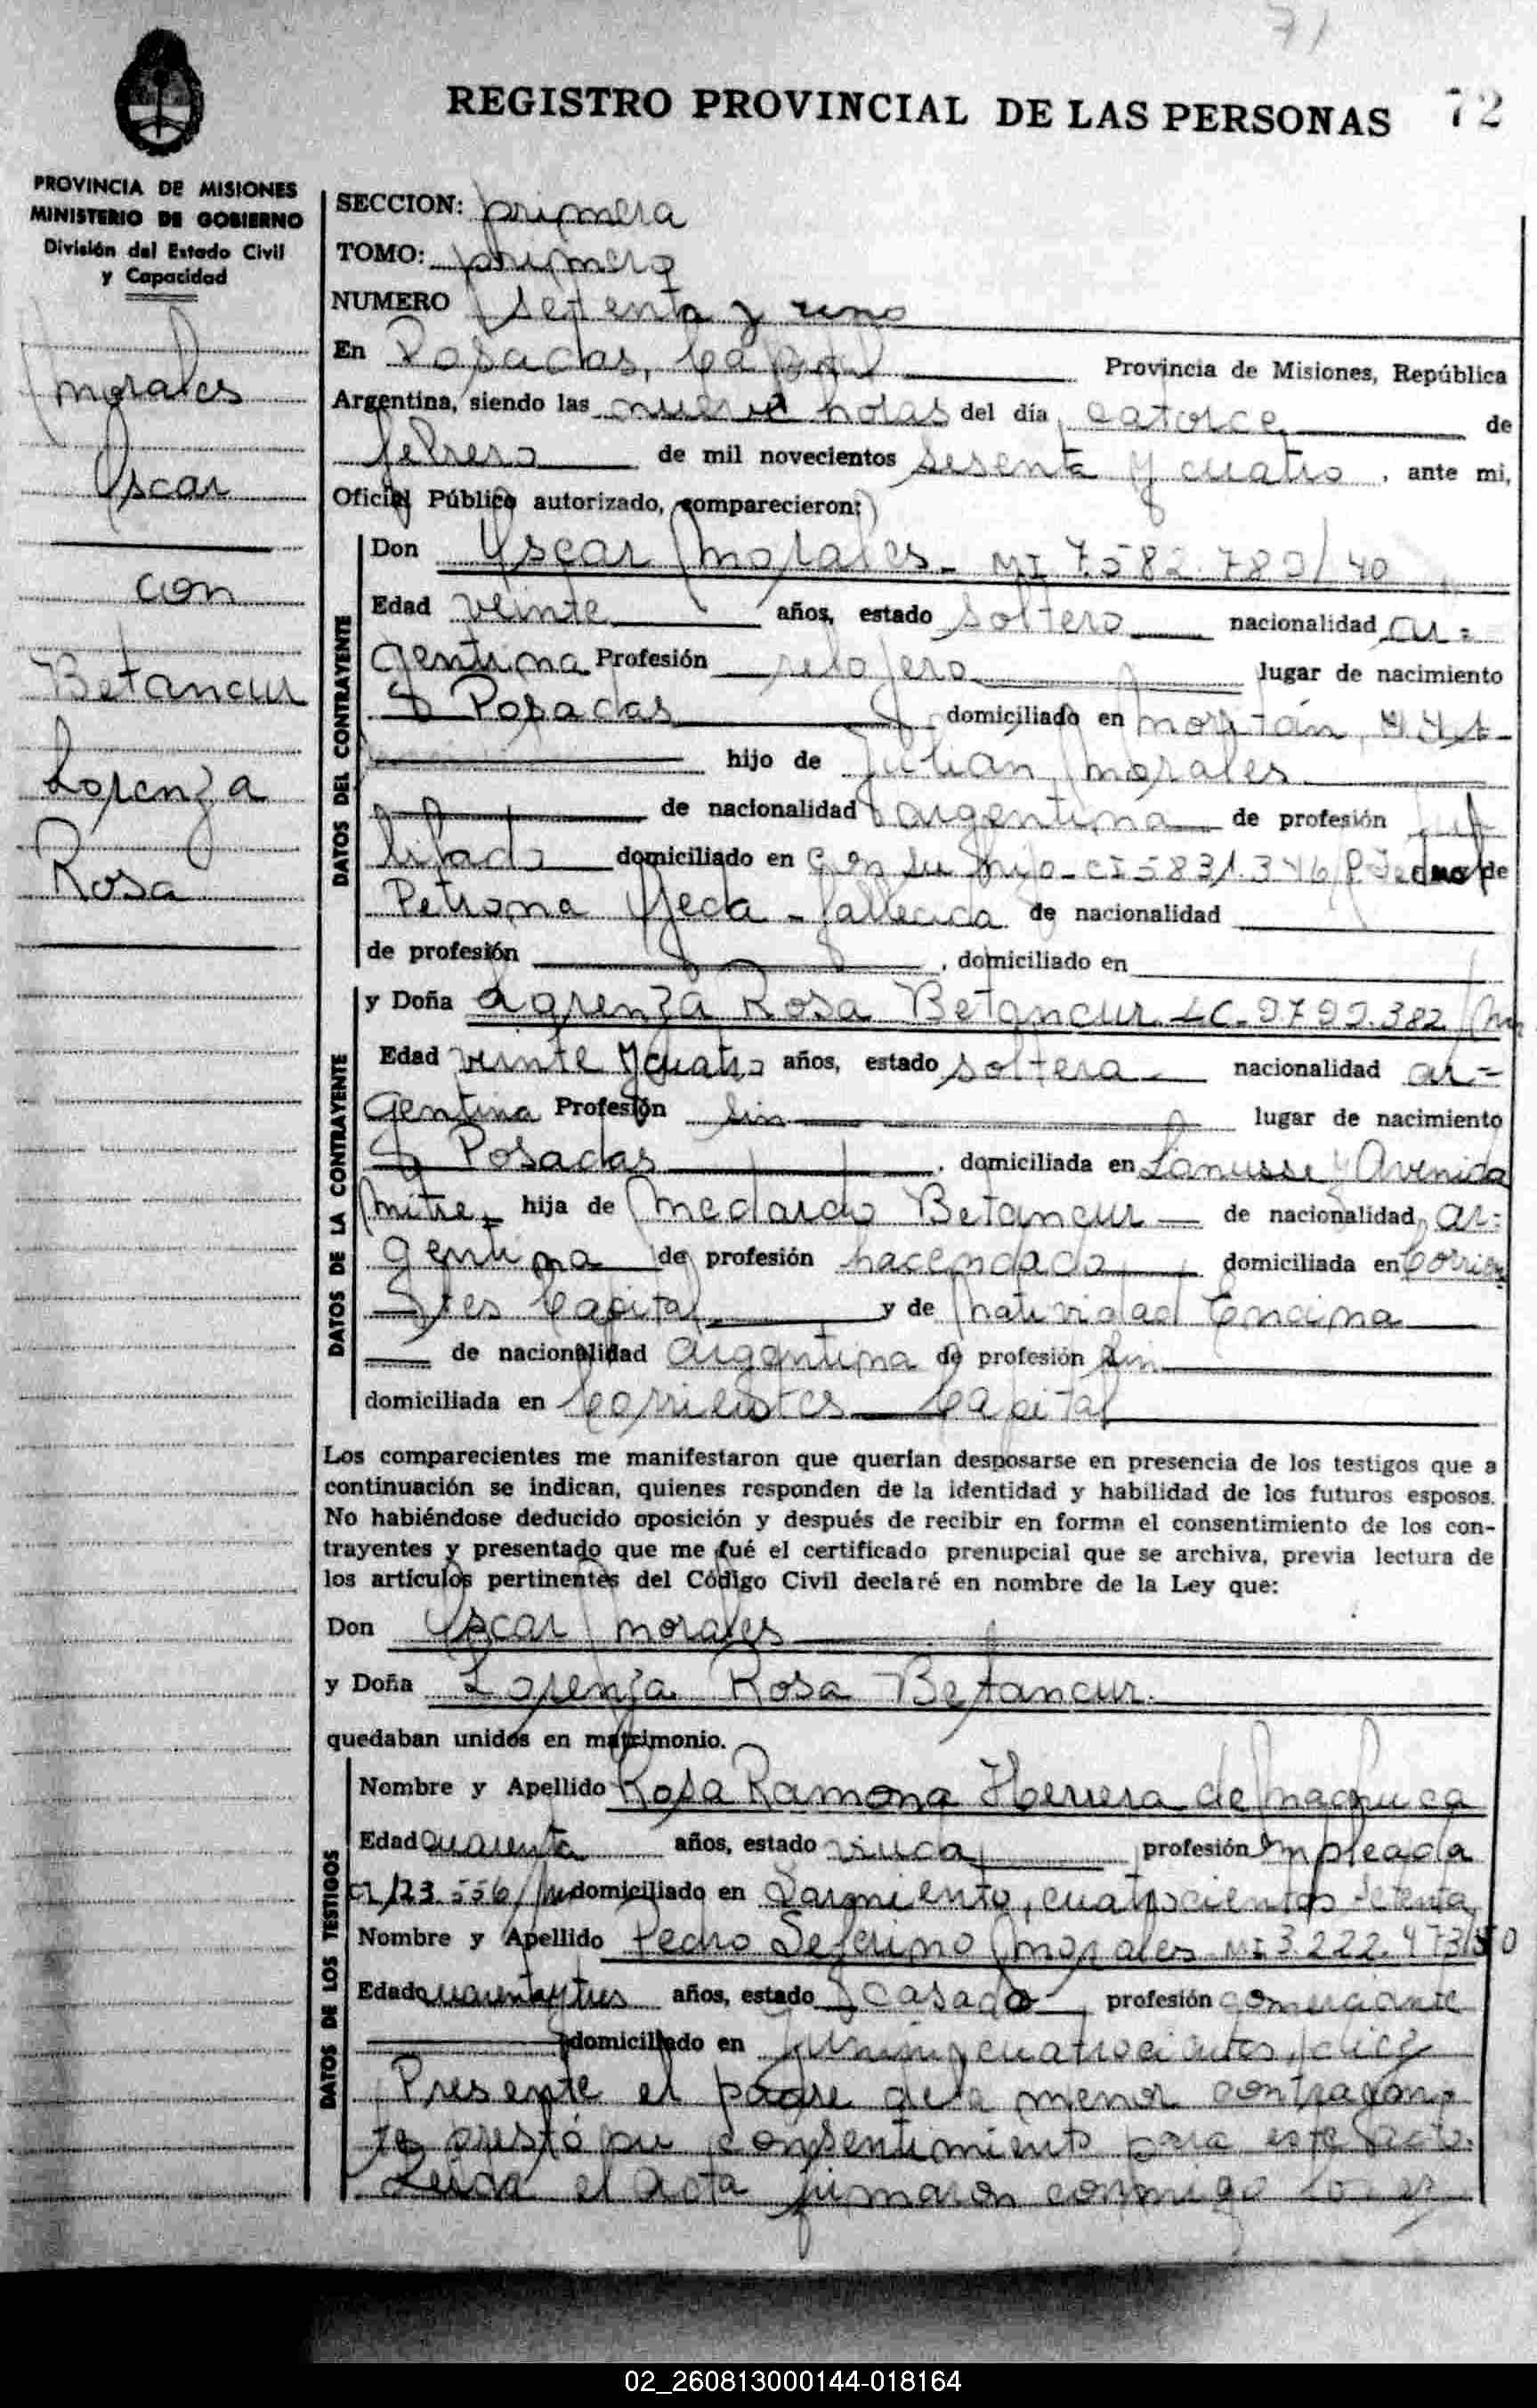 71
REGISTRO PROVINCIAL DE LAS PERSONAS 72
PROVINCIA DE MISIONES
MINISTERIO DE GOBIERNO
División del Estado Civil
y Capacidad
Morales
Oscar
con
Betancur
Lorenza
Rosa
SECCION: primera
TOMO: primero
NUMERO setenta y uno
En Posadas, Capital Provincia de Misiones, República
Argentina, siendo las nueve horas del día catorce de
febrero de mil novecientos sesenta y cuatro, ante mi,
Oficial Público autorizado, comparecieron:
DATOS DEL CONTRAYENTE
Don Oscar Morales - MI 7.582.780/40
Edad veinte años, estado soltero nacionalidad ar=
gentina Profesión relojero lugar de nacimiento
Posadas domiciliado en
hijo de Julian Morales
de nacionalidad argentina de profesión ju
bilado domiciliado en Con su hijo - CI 5831.346 de
Petrona Ojeda - fallecida de nacionalidad
de profesión , domiciliado en
DATOS DE LA CONTRAYENTE
y Doña Lorenza Rosa Betancur LC. 9799.382
Edad veinte y cuatro años, estado soltera nacionalidad ar=
gentina Profesión sin lugar de nacimiento
Posadas , domiciliada en Lanusse y Avenida
Mitre, hija de Medardo Betancur de nacionalidad, ar=
gentina de profesión hacendado domiciliada en Corrien
tes Capital y de Natividad Encina
de nacionalidad Argentina de profesión sin
domiciliada en Corrientes Capital
Los comparecientes me manifestaron que querían desposarse en presencia de los testigos que a
continuación se indican, quienes responden de la identidad y habilidad de los futuros esposos.
No habiéndose deducido oposición y después de recibir en forma el consentimiento de los con-
trayentes y presentado que me fué el certificado prenupcial que se archiva, previa lectura de
los artículos pertinentes del Código Civil declaré en nombre de la Ley que:
Don Oscar Morales
y Doña Lorenza Rosa Betancur.
quedaban unidos en matrimonio.
DATOS DE LOS TESTIGOS
Nombre y Apellido Rosa Ramona Herrera de Machuca
Edad cuarenta años, estado viuda profesión Empleada
CI 123.556/ domiciliado en Sarmiento, cuatrocientos setenta
Nombre y Apellido Pedro Seferino Morales MI 3.222.473/50
Edad cuarentaytres años, estado casado profesión comerciante
domiciliado en Junin, cuatrocientos, diez
Presente el padre dela menor contrayen
te prestó su consentimiento para este acto.
Leida el Acta firmaron conmigo los
02_260813000144-018164